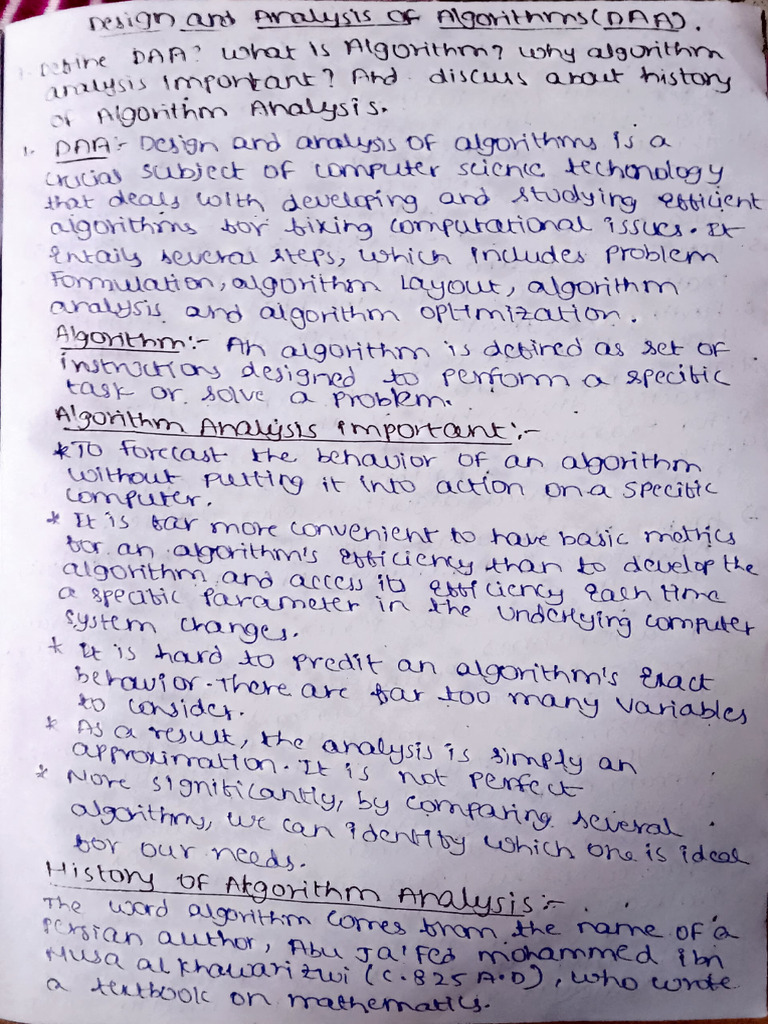 Design and Analysis of Algorithms (DAA).
1. Define DAA? What is Algorithm? Why algorithm
analysis important? And discuss about history
of Algorithm Analysis.
1. DAA:- Design and analysis of algorithms is a
crucial subject of computer scienc techonology
that deals with developing and studying efficient
algorithms for fixing computational issues. It
entails several steps, which includes problem
Formulation, algorithm layout, algorithm
analysis and algorithm optimization.
Algorithm:- An algorithm is defined as set of
instructions designed to perform a specific
task or solve a problem.
Algorithm Analysis important:-
* To forecast the behavior of an algorithm
without putting it into action on a specific
computer.
* It is far more convenient to have basic metrics
for an algorithm's efficiency than to develop the
algorithm and access its efficiency each time
a specific parameter in the underlying computer
system changes.
* It is hard to predit an algorithm's exact
behavior. There are far too many variables
to consider.
* As a result, the analysis is simply an
approximation. It is not perfect
* More significantly, by comparing several
algorithms, we can identify which one is ideal
for our needs.
History of Algorithm Analysis:-
The word algorithm comes from the name of a
Persian author, Abu Ja'fed mohammed ibn
Musa al khawarizwi (C.825 A.D), who wrote
a textbook on mathematics.